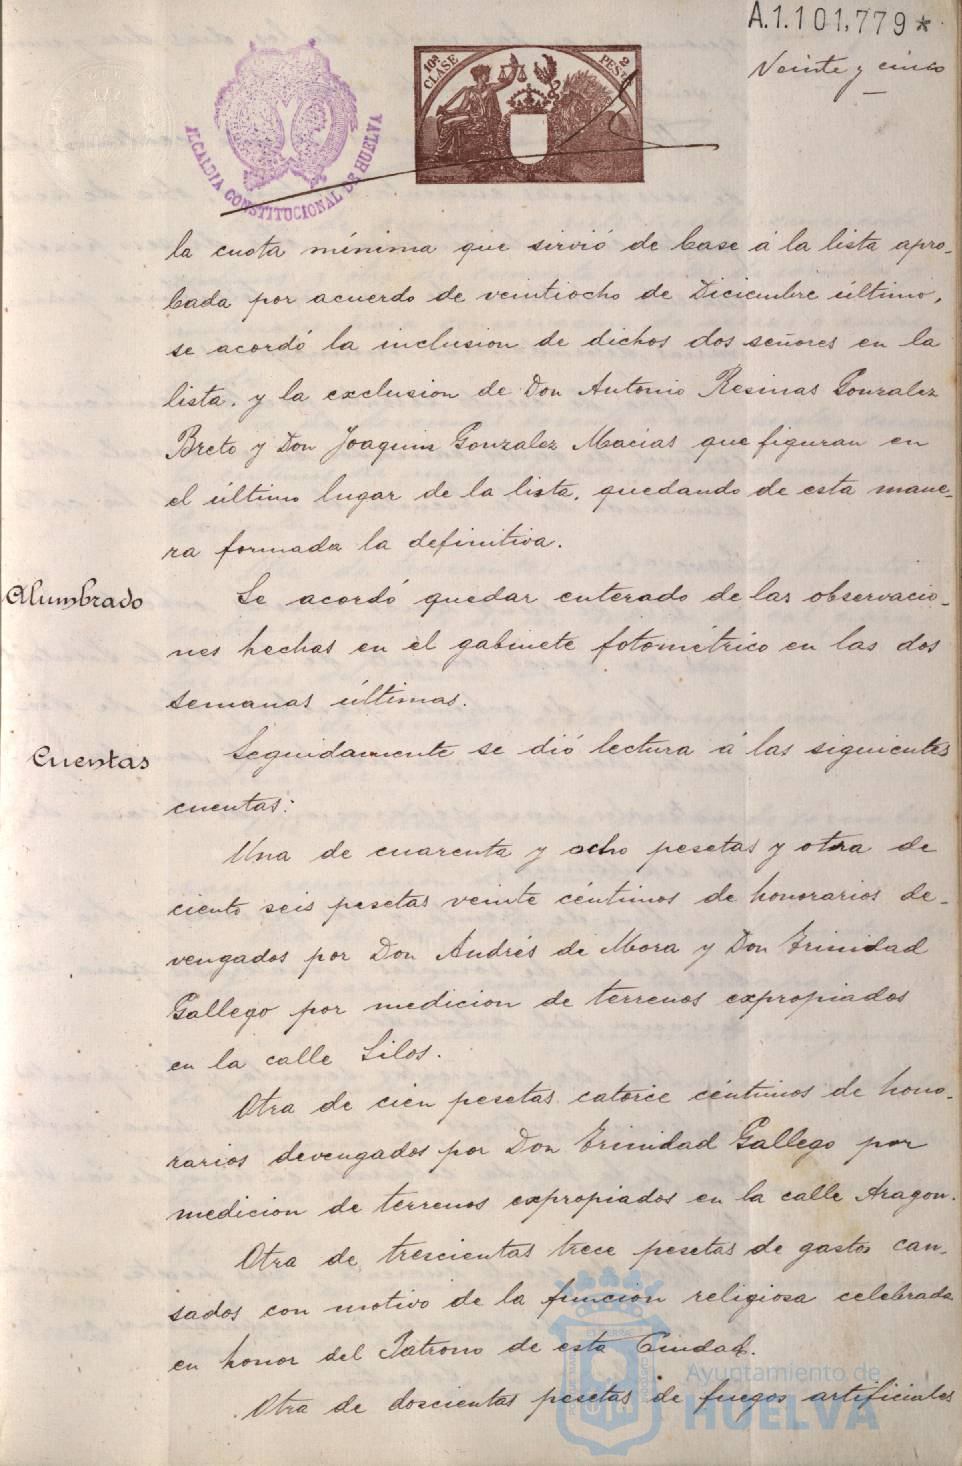 A.1.101,779*
Veinte y cinco
10ª CLASE
2 PESTS
ALCALDIA CONSTITUCIONAL DE HUELVA
la cuota mínima que sirvió de base á la lista apro-
bada por acuerdo de veintiocho de Diciembre último,
se acordó la inclusion de dichos dos señores en la
lista, y la exclusion de Don Antonio Resinas Gonzalez
Breto y Don Joaquin Gonzalez Macias que figuran en
el último lugar de la lista, quedando de esta mane-
ra formada la definitiva.
Alumbrado
Se acordó quedar enterado de las observacio-
nes hechas en el gabinete fotométrico en las dos
semanas últimas.
Cuentas
Seguidamente se dió lectura á las siguientes
cuentas:
Una de cuarenta y ocho pesetas y otra de
ciento seis pesetas veinte céntimos de honorarios de-
vengados por Don Andrés de Mora y Don Trinidad
Gallego por medicion de terrenos expropiados
en la calle Silos.
Otra de cien pesetas catorce céntimos de hono-
rarios devengados por Don Trinidad Gallego por
medicion de terrenos expropiados en la calle Aragon.
Otra de trescientas trece pesetas de gastos cau-
sados con motivo de la funcion religiosa celebrada
en honor del Patrono de esta Ciudad.
Otra de doscientas pesetas de fuegos artificiales
Ayuntamiento de
HUELVA